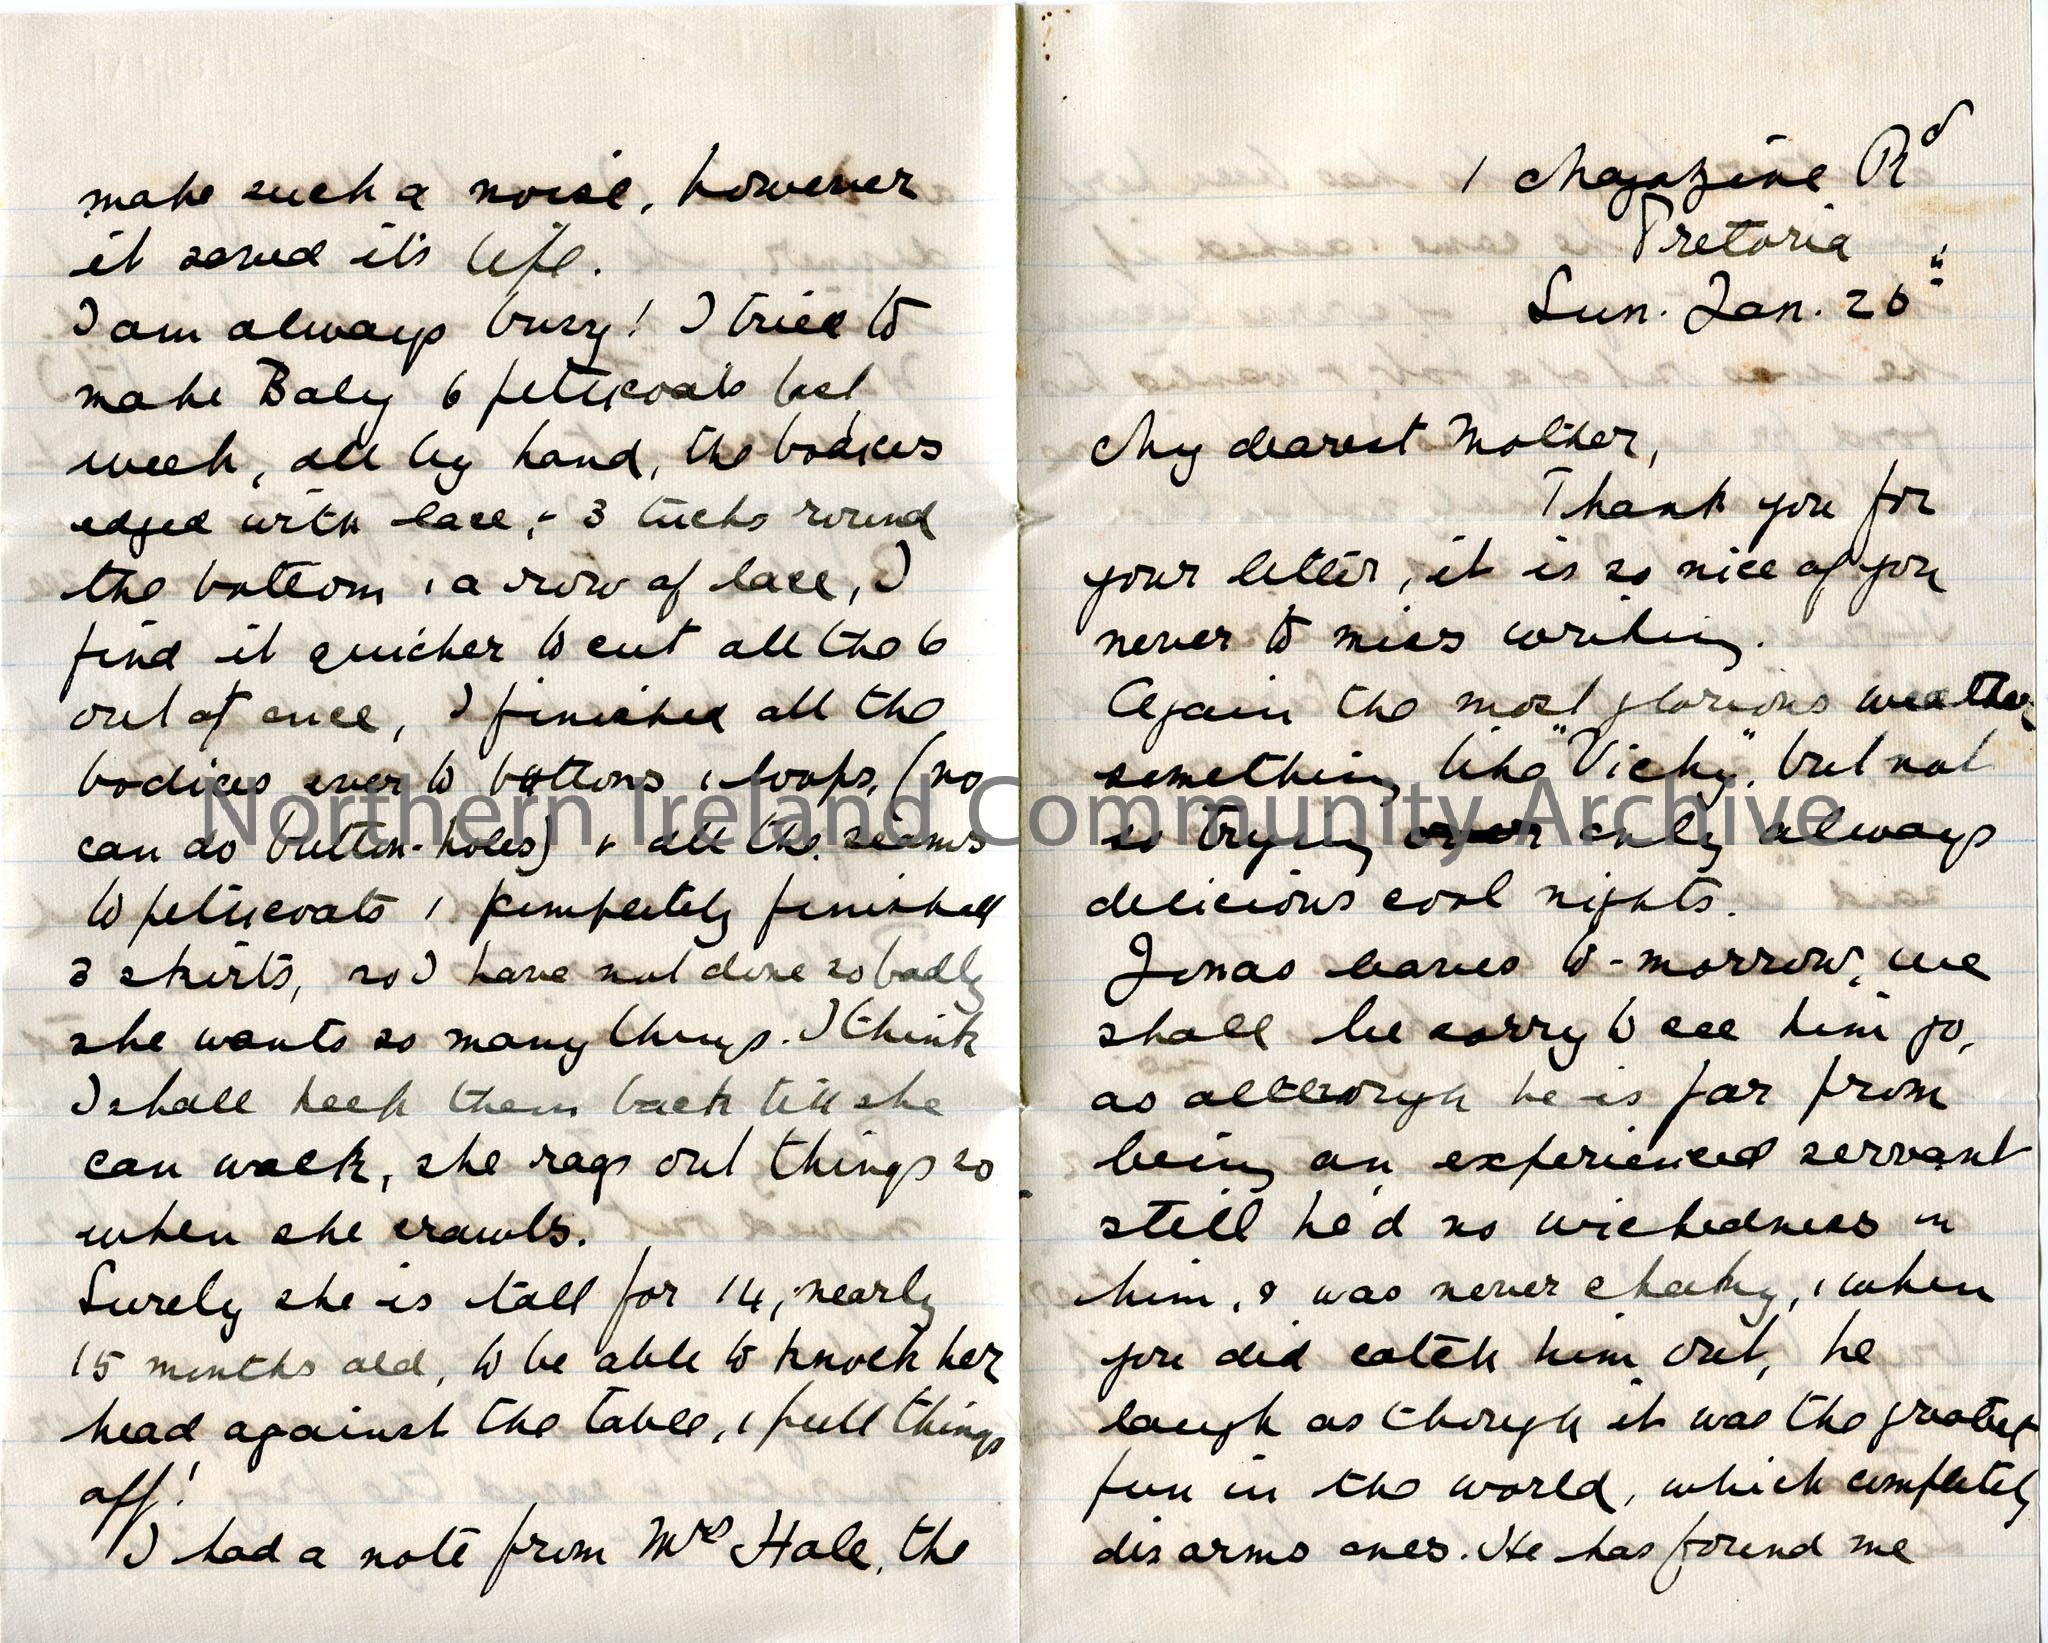 make such a noise, however
it saved its life.
I am always busy! I tried to
make Baby 6 petticoats last
week, all by hand, the bodices
edged with lace, + 3 tucks round
the bottom, & a row of lace, I
find it quicker to cut all the 6
out at once, I finished all the
bodices even to buttons & loops, (no
can do button-holes) + all the seams
to petticoats & completely finished
3 skirts, so I have not done so badly
she wants so many things. I think
I shall keep them back till she
can walk, she rags out things so
when she crawls.
Surely she is tall for 14, nearly
15 months old, to be able to knock her
head against the table, & pull things
off!
I had a note from Mrs Hale, the
1 Magazine Rd
Pretoria
Sun. Jan. 26th
My dearest Mother,
Thank you for
your letter, it is so nice of you
never to miss writing.
Again the most glorious weather
something like "Vichy", but not
so trying only always
delicious cool nights.
Jonas leaves to-morrow, we
shall be sorry to see him go,
as although he is far from
being an experienced servant
still he'd no wickedness in
him, & was never cheeky, & when
you did catch him out, he
laugh as though it was the greatest
fun in the world, which completely
disarms ones. He has found me
Northern Ireland Community Archive